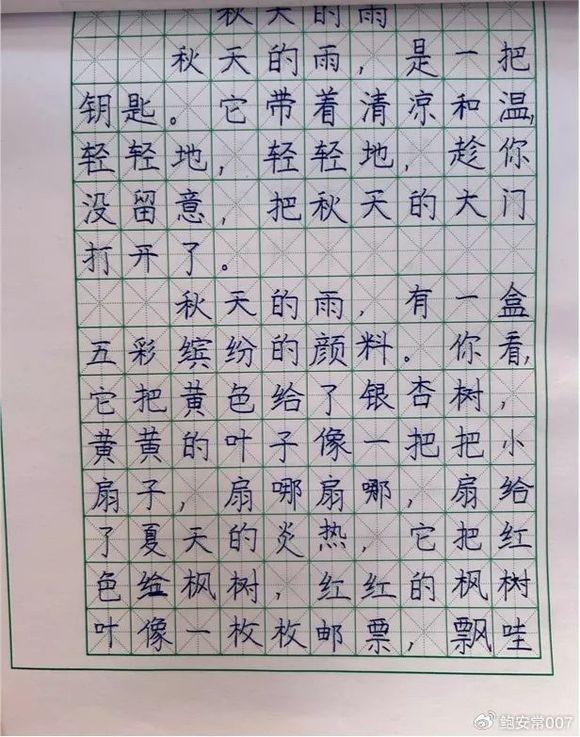 秋天的雨
秋天的雨，是一把
钥匙。它带着清凉和温，
轻轻地，轻轻地，趁你
没留意，把秋天的大门
打开了。
秋天的雨，有一盒
五彩缤纷的颜料。你看，
它把黄色给了银杏树，
黄黄的叶子像一把把小
扇子，扇哪扇哪，扇给
了夏天的炎热，它把红
色给枫树，红红的枫树
叶像一枚枚邮票，飘哇
鲍安常007